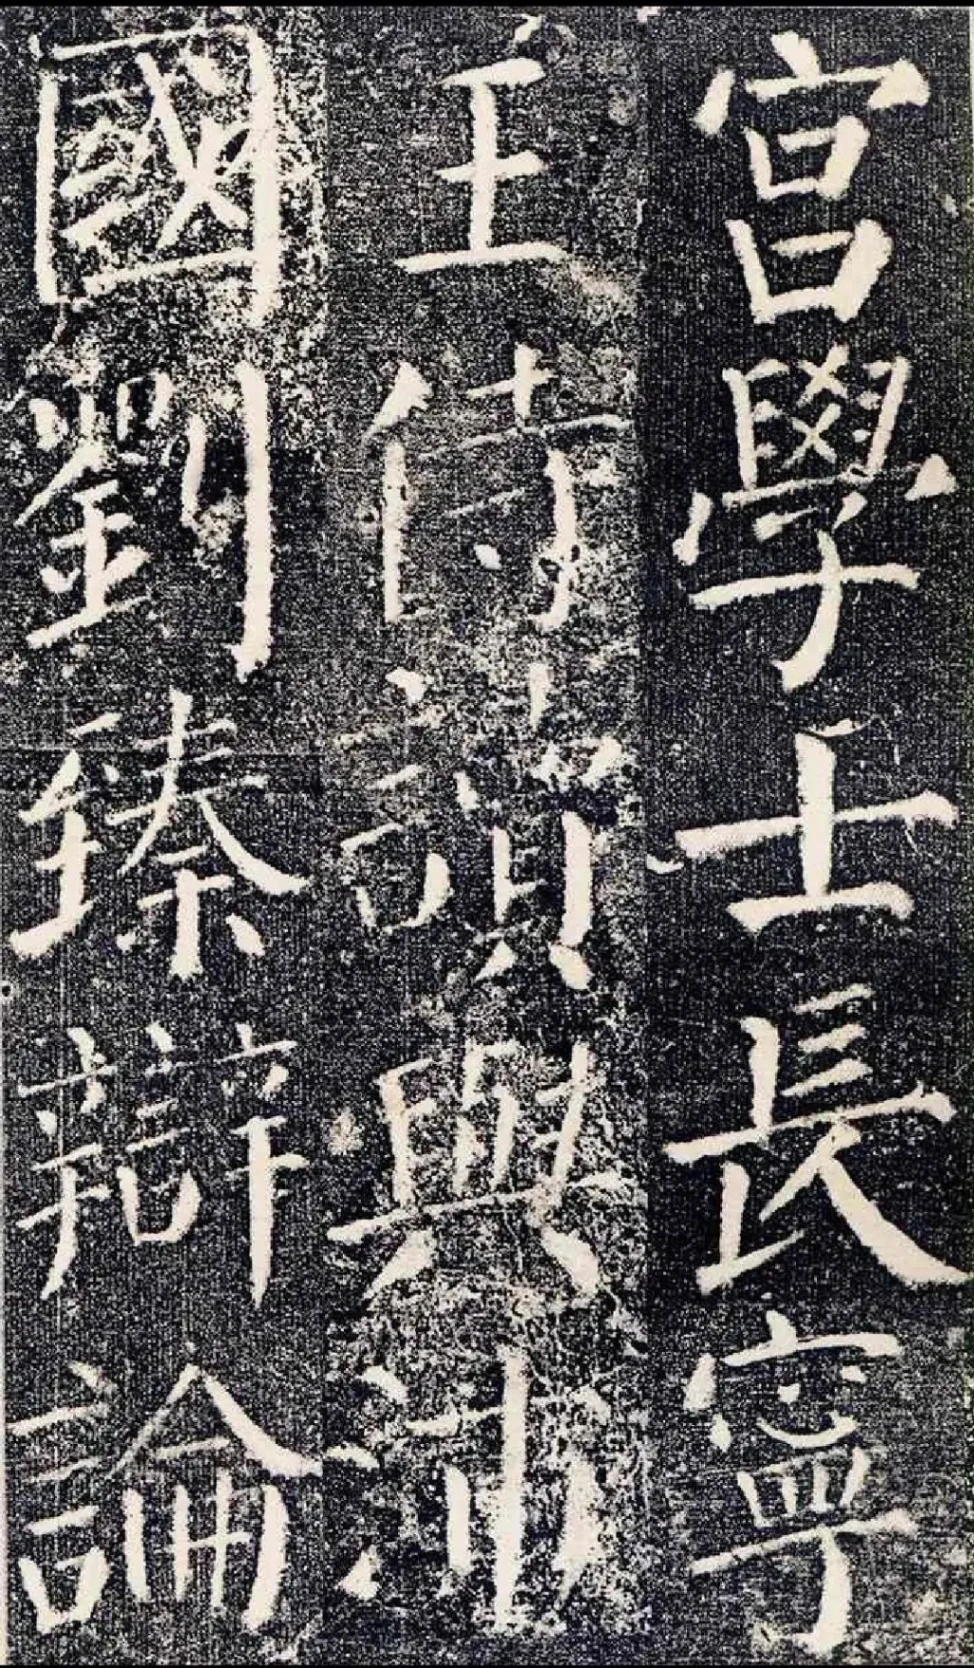 宮學士長寧
王侍讀與沛
國劉臻辯論